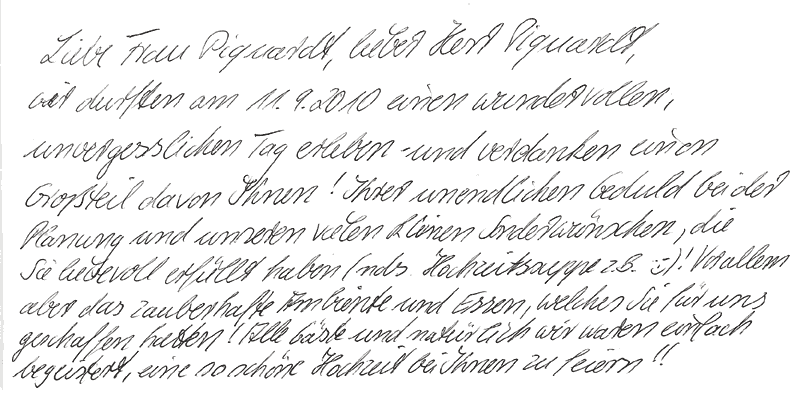 Liebe Frau Piquardt, lieber Herr Piquardt,
wir durften am 11.9.2010 einen wundervollen,
unvergesslichen Tag erleben - und verdanken einen
Großteil davon Ihnen! Ihrer unendlichen Geduld bei der
Planung und unseren vielen kleinen Sonderwünschen, die
Sie liebevoll erfüllt haben (Hochzeitssuppe z.B. :-)! Vor allem
aber das zauberhafte Ambiente und Essen, welches Sie für uns
geschaffen hatten! Alle Gäste und natürlich wir waren einfach
begeistert, eine so schöne Hochzeit bei Ihnen zu feiern!!